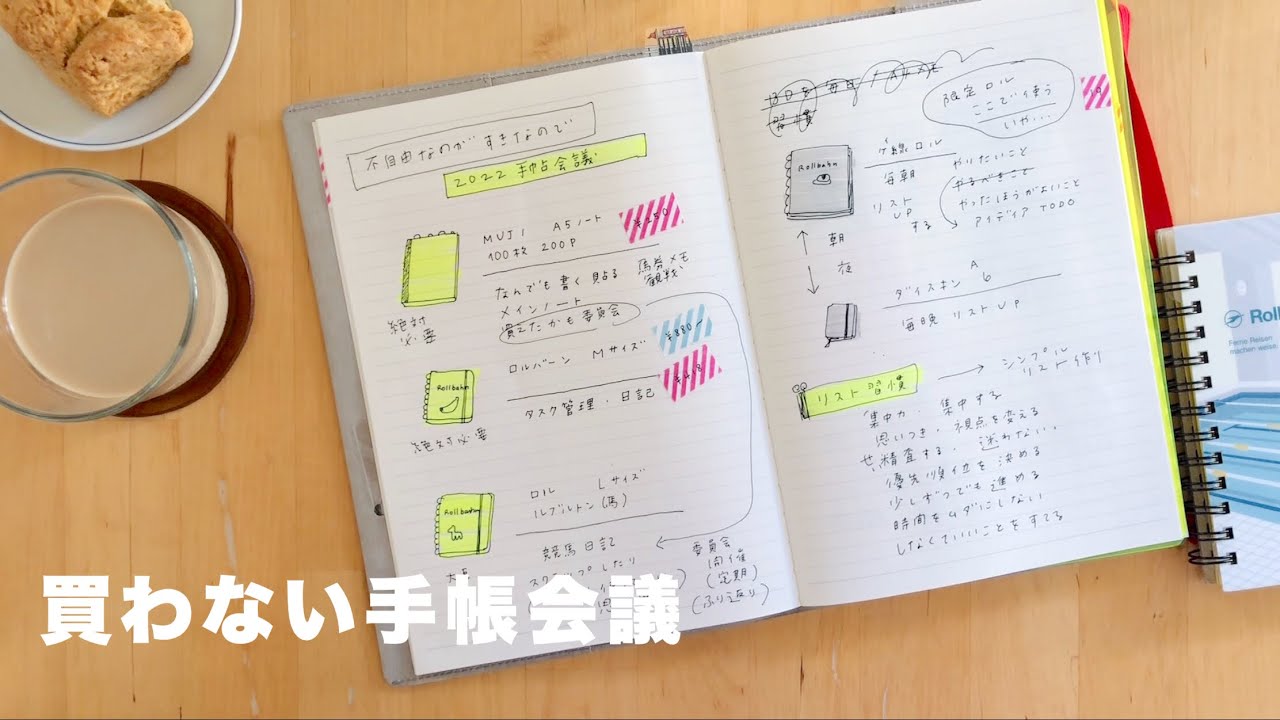 不自由なのがすきなので
2022 手帖会議
MUJI A5ノート
100枚 200P
¥250
なんでも書く貼る
メインノート
買えたかも委員会
馬券メモ
観戦
絶対
必要
ロルバーン Mサイズ
¥880
タスク管理・日記
Rollbahn
絶対必要
ロル Lサイズ
ルブルトン(馬)
Rollbahn
競馬日記
委員会
(開催
(定期)
(ふり返り)
限定ロル
ここで使う
いや...
Rollbahn
毎朝
リスト
UP
する
やりたいこと
やるべきこと
やったほうがよいこと
アイディア TODO
朝
夜
ダイスキン A6
毎晩 リストUP
リスト習慣
シンプル
リスト作り
集中力 集中する
思いつき・視点を変える
精査する・迷わない。
優先順位を決める
少しずつでも進める
時間をムダにしない
しなくていいことをすてる
Roll
Ferne Reisen
machen weise.
買わない手帳会議